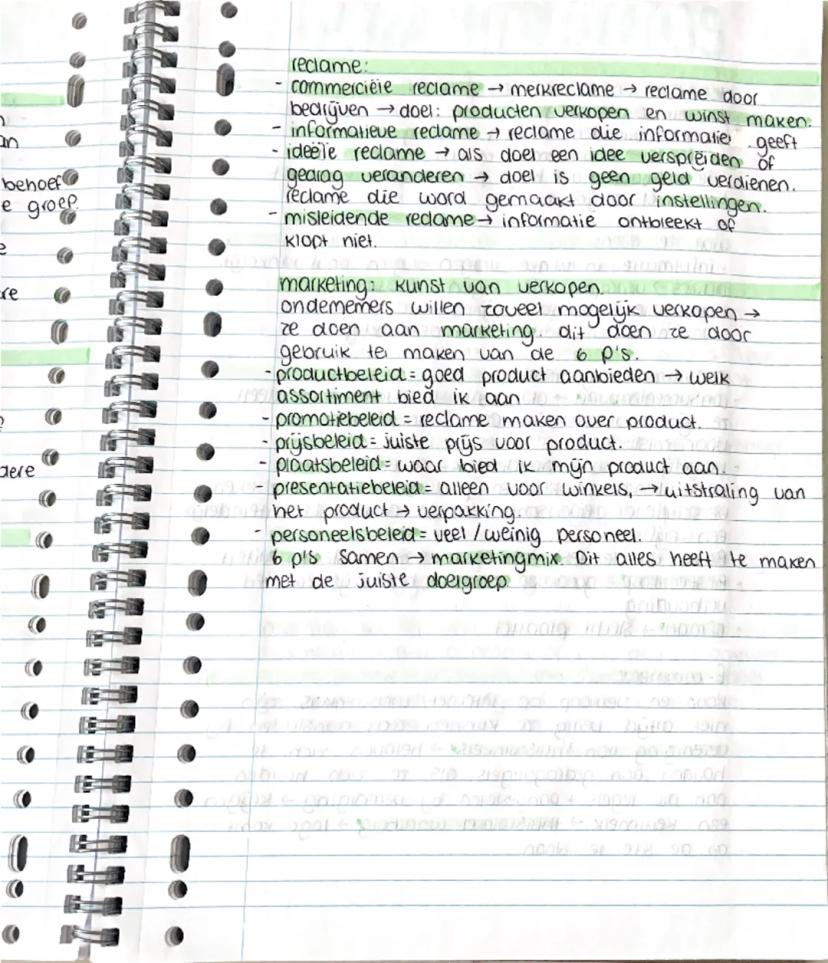 reclame:
- commerciële reclame → merkreclame → reclame door
bedrijven → doel: producten verkopen en winst maken.
- informatieve reclame → reclame die informatie geeft
- ideële reclame → als doel een idee verspreiden of
gedrag veranderen → doel is geen geld verdienen.
reclame die word gemaakt door instellingen.
- misleidende reclame → informatie ontbreekt of
klopt niet.
marketing: kunst van verkopen.
ondernemers willen zoveel mogelijk verkopen →
ze doen aan marketing. dit doen ze door
gebruik te maken van de 6 p's.
- productbeleid = goed product aanbieden → welk
assortiment bied ik aan
- promotiebeleid = reclame maken over product.
- prijsbeleid = juiste prijs voor product.
- plaatsbeleid = waar bied ik mijn product aan.
- presentatiebeleid = alleen voor winkels, → uitstraling van
het product → verpakking.
- personeelsbeleid = veel / weinig personeel.
6 p's samen → marketingmix. Dit alles heeft te maken
met de juiste doelgroep.
an
behoef
e groep.
e
re
dere